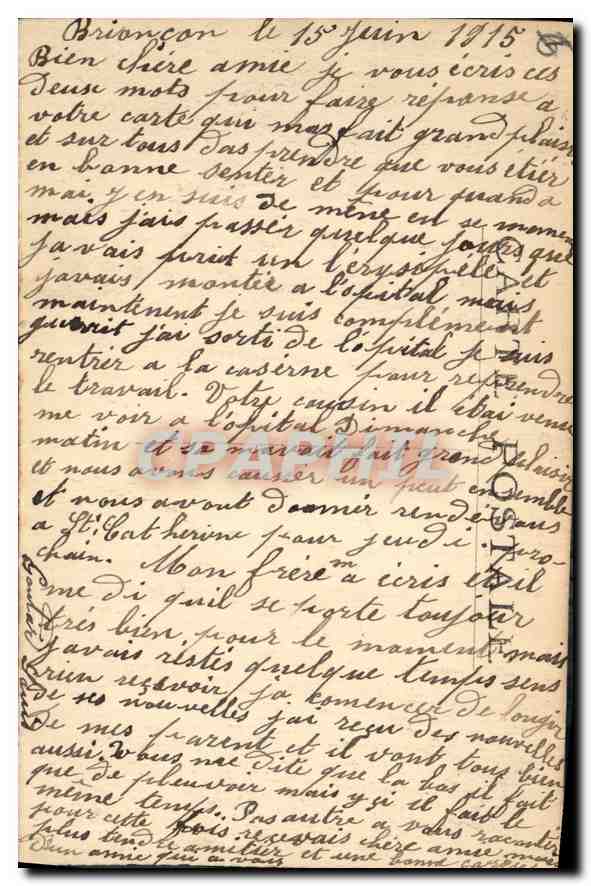 Briançon le 15 Juin 1915
Bien chère amie je vous écris ces
deux mots pour faire réponse a
votre carte qui mas fait grand plaisir
et sur tous das prendre que vous etièr
en bonne senter et pour quand a
mai j'en suis de même en se moment
mais j'ais passèr quelque jours que
j'avais prit un l'érysipéle et
javais montée a l'opital mais
maintenent je suis complément
guérit j'ai sorti de l'opital je suis
rentrér a la casérne pour reprendre
le travail. Votre cousin il étai venu
me voir a l'opital Dimanche
matin et sa mavait fait grand plaisir
et nous avons causer un peut ensemble
et nous avont donnér rendé vous
a St. Catherine pour jeudi pro-
chain. Mon frérem a écris et il
me di quil se porte toujour
trés bien pour le moment mais
javais restés quelque temps sens
rien recevoir ja comencer de longir
de ses nouvelles j'ai reçu des nouvelles
de mes parent et il vont tous bien
aussi, vous me dite que la bas il fait
que de pleuvoir mais y çi il fait le
même temps. Pas autre a vous raconter
pour cette fois recevais chère amie mais
plus tendre amitier et une bonne caresse
d'un amie qui a vous
Louis
CARTE POSTALE
CPAPHIL